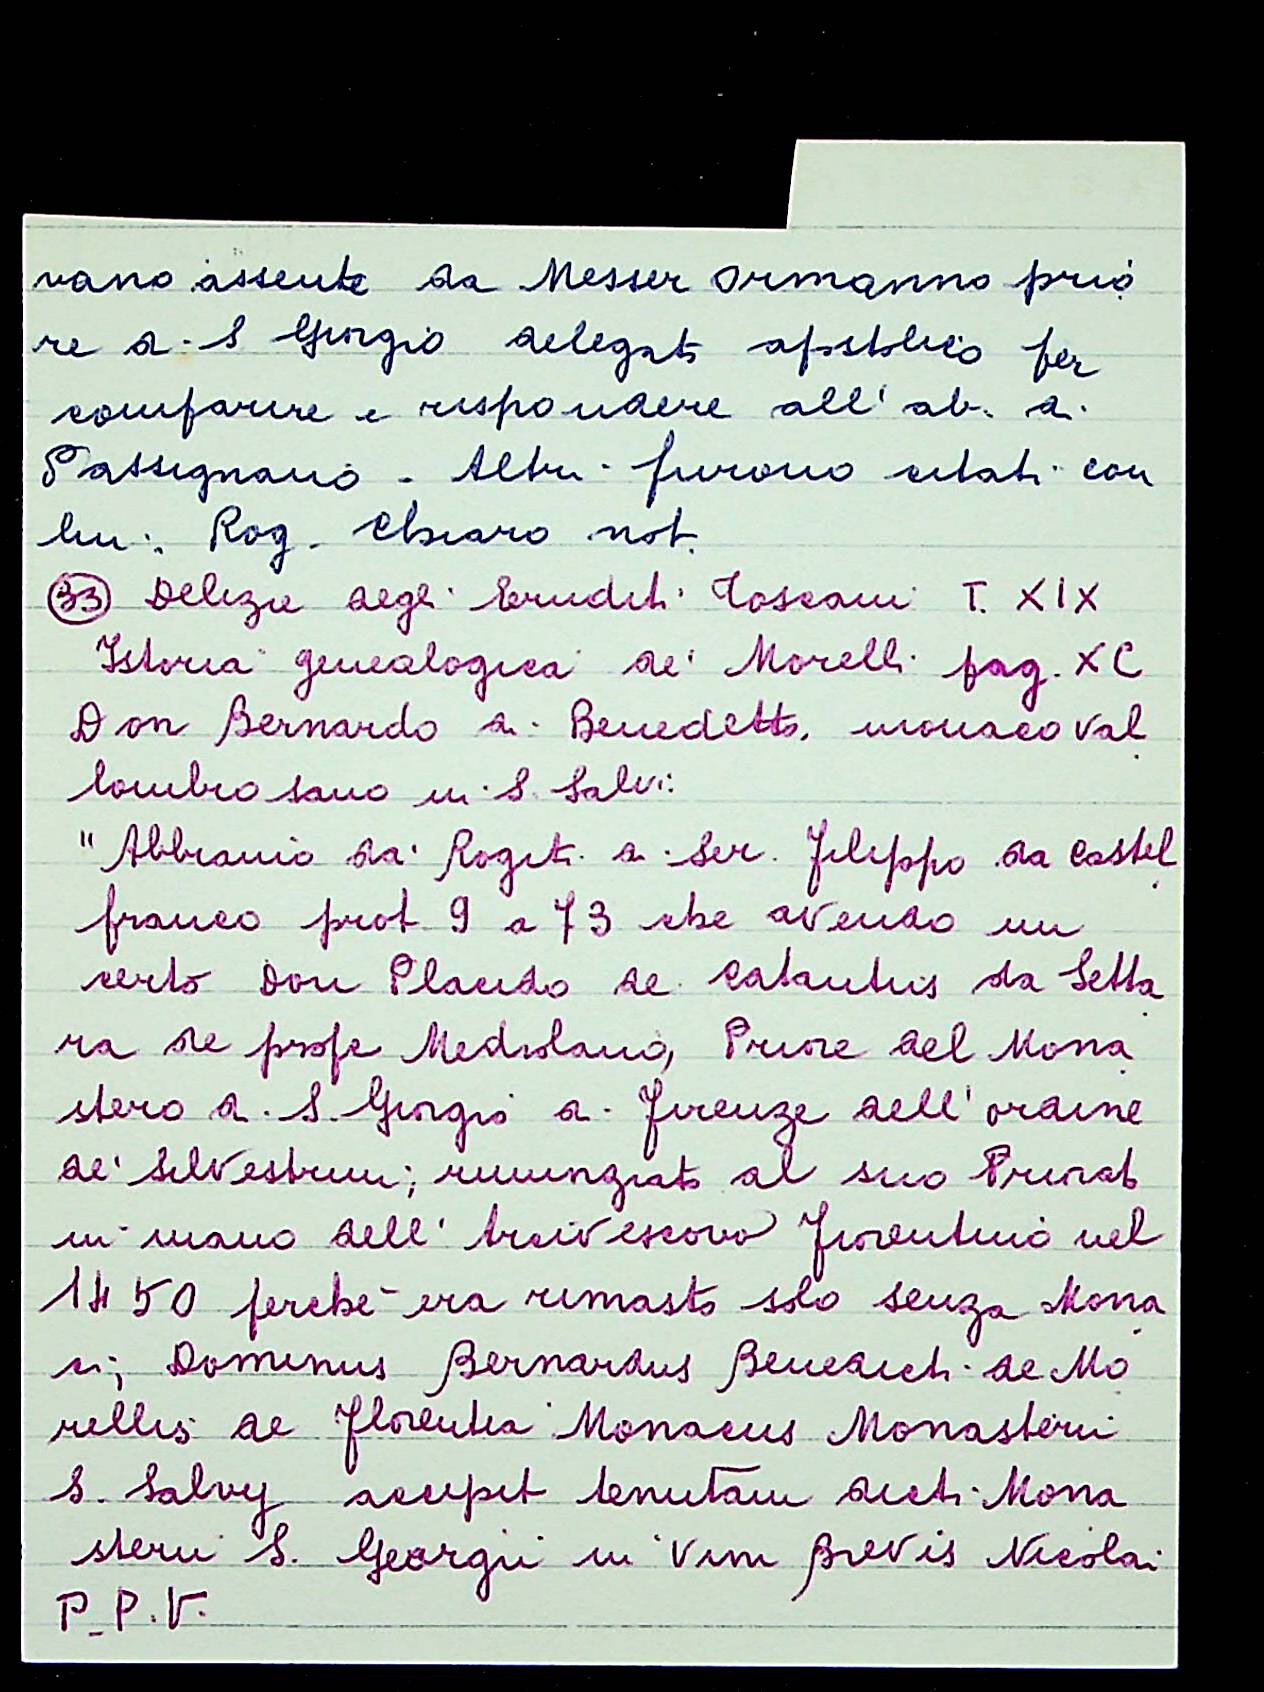 vano assente da Messer Ormanno prio
re di S Giorgio delegato apostolico per
comparire e rispondere all'ab. di
Passignano. Altri furono citati con
lui. Rog. Chiaro not.
(33) Delizie degli Eruditi Toscani T. XIX
Istoria genealogica de' Morelli pag. XC
Don Bernardo di Benedetto, monaco val
lombrosano in S. Salvi:
"Abbiamo da' Rogiti di Ser. Filippo da Castel
franco prot. 9 a 73 che avendo un
certo Don Placido de Catantiis da Setta
ra de prope Mediolano, Priore del Mona
stero di S. Giorgio di Firenze dell'ordine
de' Silvestrini; rinunziato al suo Priorato
in mano dell'Arcivescovo Fiorentino nel
1450 perchè era rimasto solo senza Mona
ci; Dominus Bernardus Benedicti de Mo
rellis de Florentia Monacus Monasterii
S. Salvy accepit tenutam dicti Mona
sterii S. Georgii in vim Brevis Nicolai
P.P.V.